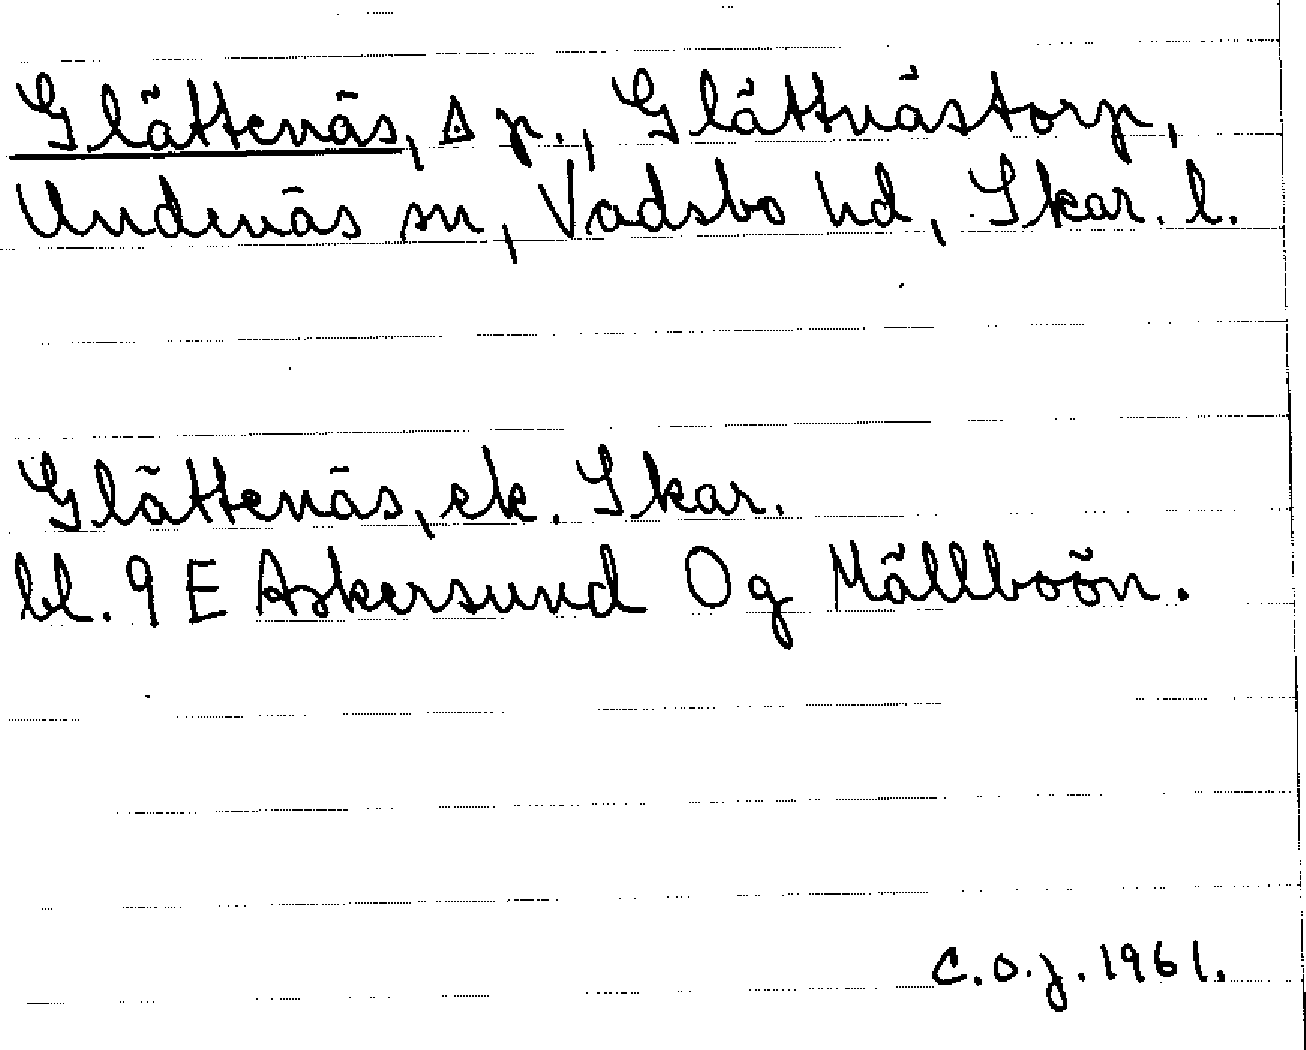 Glättenäs, ∆ p., Glättnästorp,
Undenäs sn, Vadsbo hd, Skar. l.
Glättenäs, ek. Skar.
bl. 9 E Askersund Og Mållboön.
C.O.J. 1961.